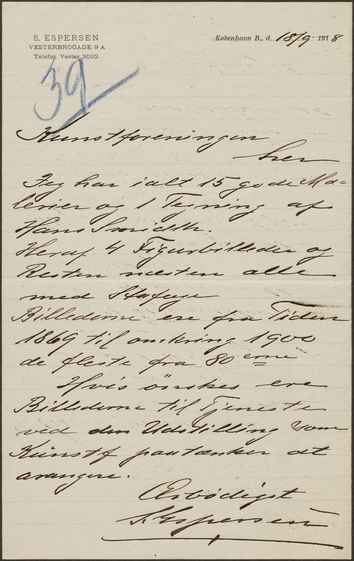 S. ESPERSEN
VESTERBROGADE 9 A
Telefon Vester 3020.
København B., d. 18/9- 1918
39
Kunstforeningen
her
Jeg har ialt 15 gode Ma-
lerier og 1 Tegning af
Hans Smidth.
Heraf 4 Figurbilleder og
Resten næsten alle
med Stafage
Billederne ere fra Tiden
1869 til omkring 1900
de fleste fra 80 erne
Hvis ønskes ere
Billederne til Tjeneste
ved den Udstilling
Kunstf paatænker at
arangere.
Ærbødigst
S. Espersen